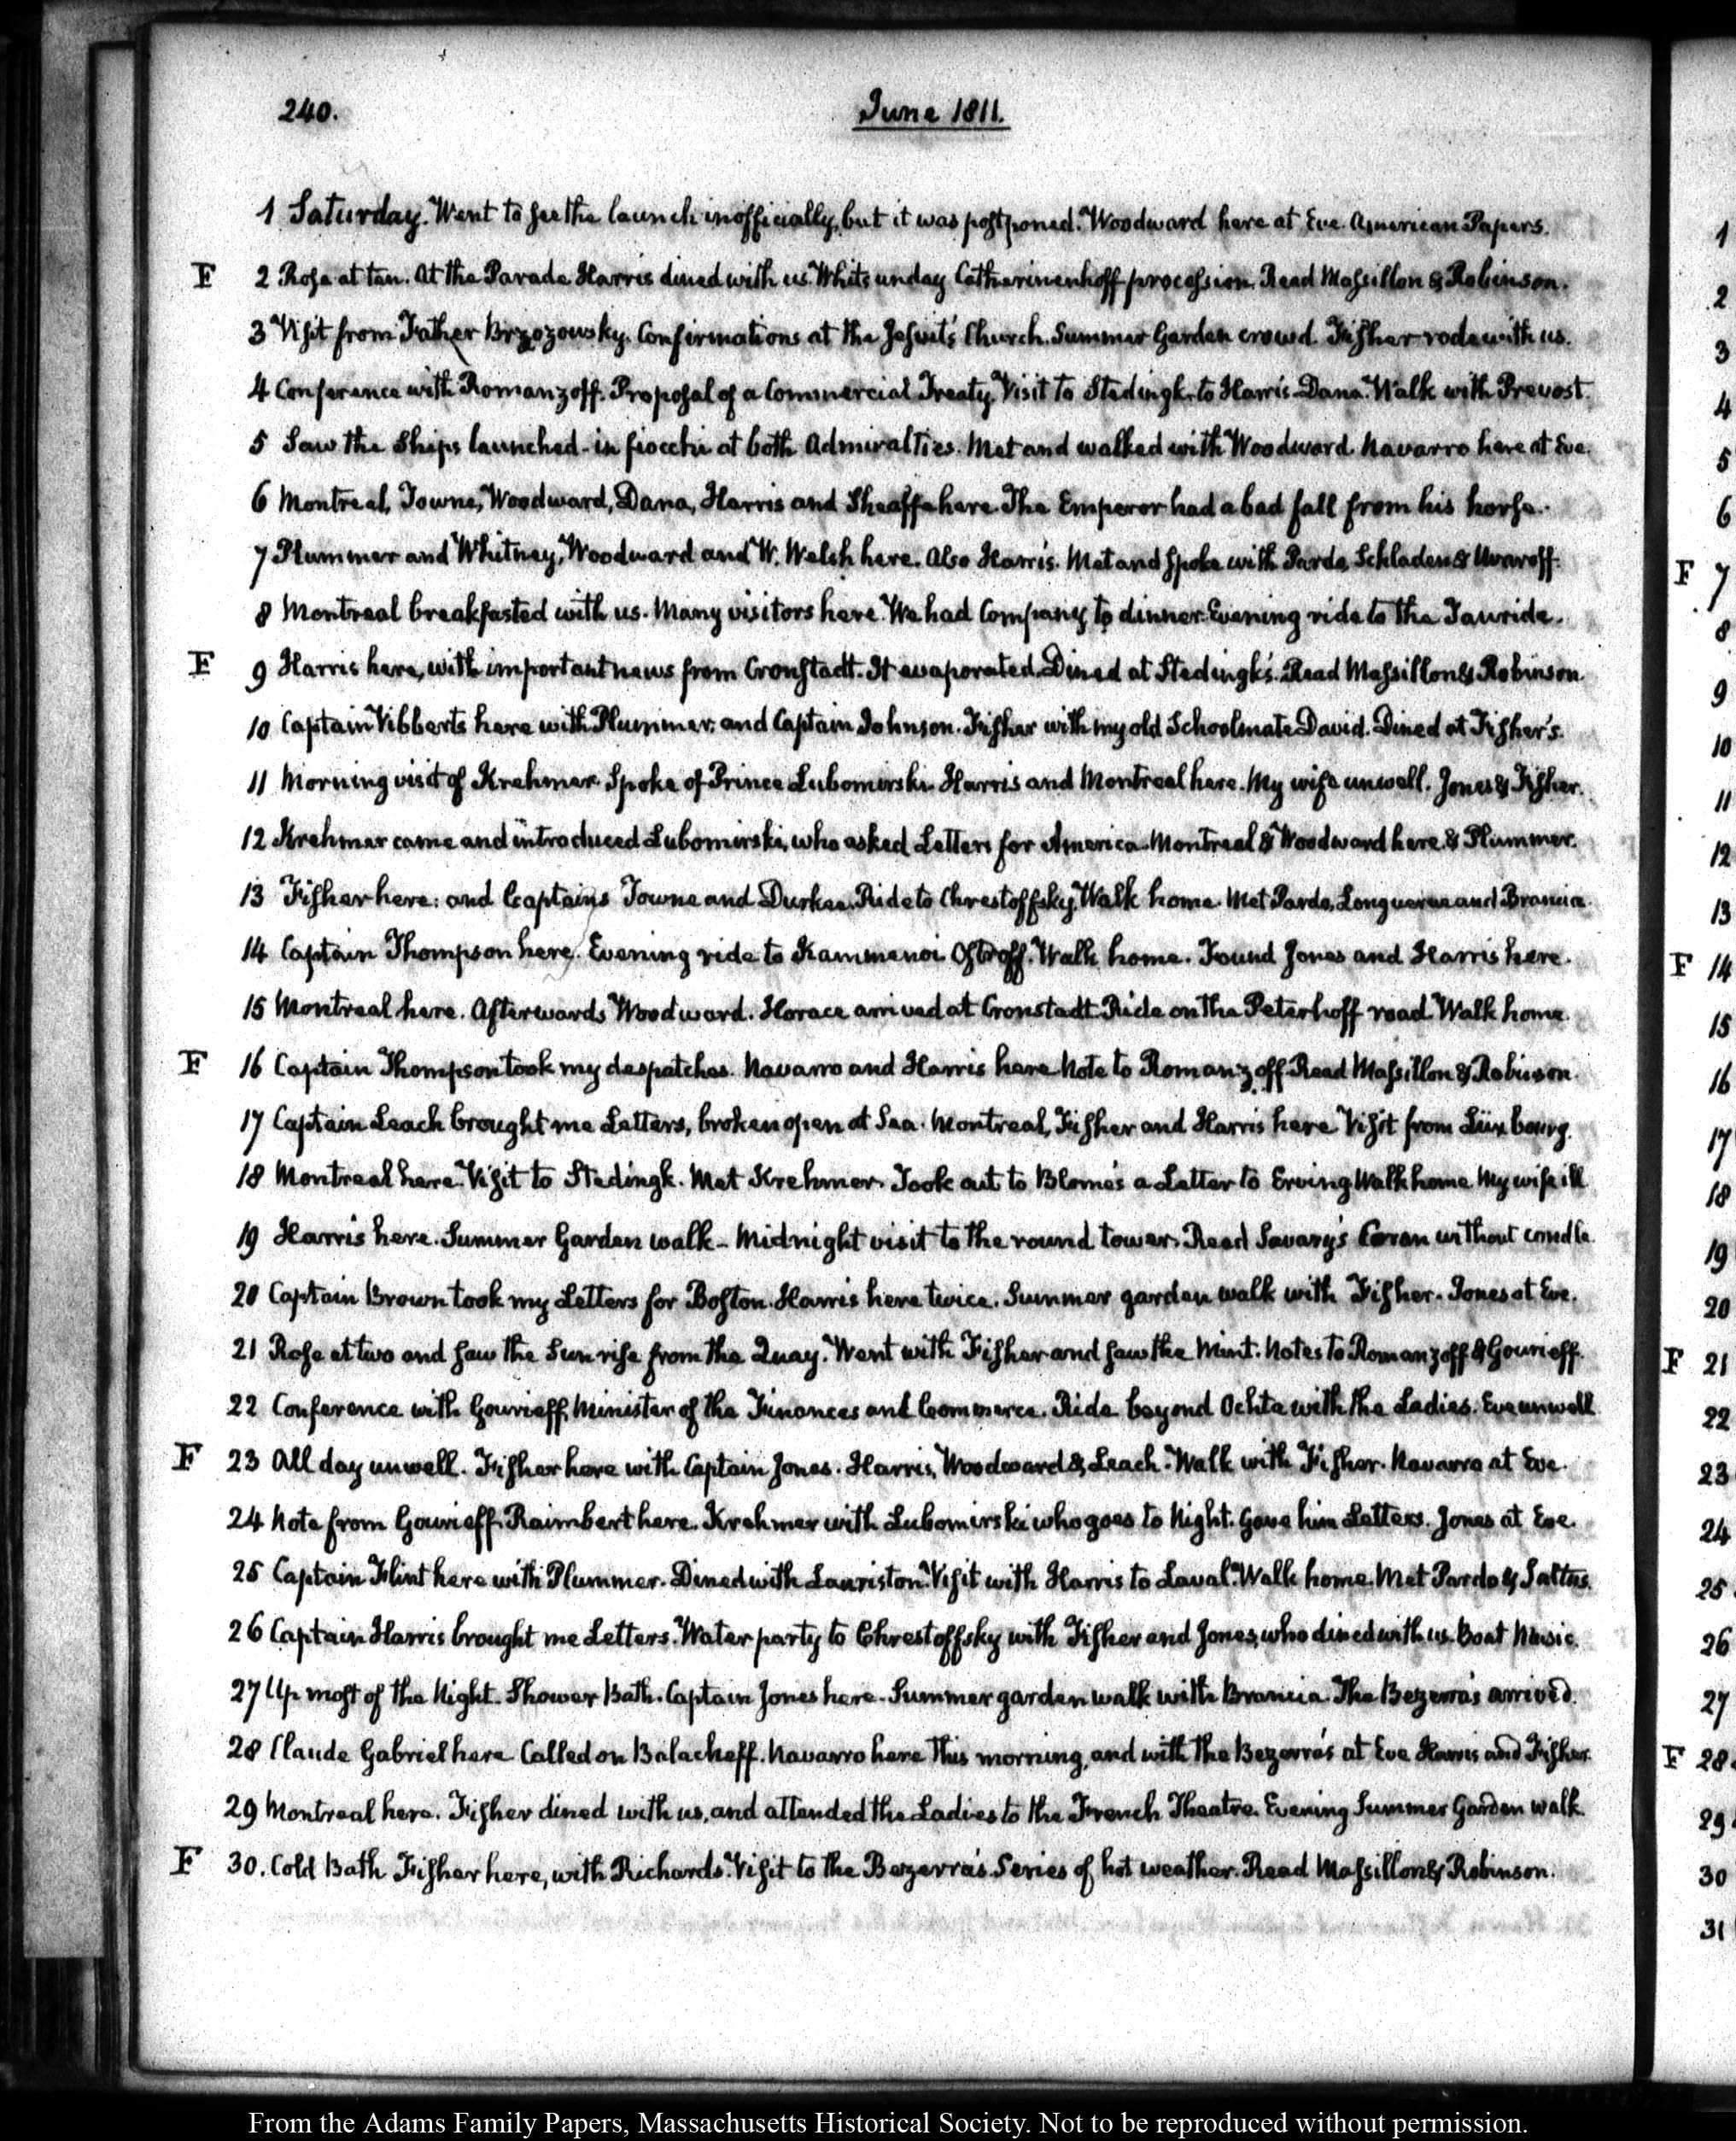 240.
June 1811.
1 Saturday. Went to see the launch inofficially, but it was postponed. Woodward here at Eve. American Papers.
F 2 Rose at ten. At the Parade. Harris dined with us. Whitsunday Catherinenhoff procession. Read Massillon & Robinson.
3 Visit from Father Brzozowsky. Confirmations at the Jesuit's Church. Summer Garden crowd. Fisher rode with us.
4 Conference with Romanzoff. Proposal of a Commercial Treaty. Visit to Stedingk, to Harris. Dana. Walk with Prevost.
5 Saw the Ships launched - in fiocchi at both Admiralties. Met and walked with Woodward. Navarro here at Eve.
6 Montreal, Towne, Woodward, Dana, Harris and Sheaffe here. The Emperor had a bad fall from his horse.
7 Plummer and Whitney, Woodward and W. Welsh here. Also Harris. Met and spoke with Pardo, Schladen & Uwaroff.
8 Montreal breakfasted with us. Many visitors here. We had Company to dinner. Evening ride to the Tauride.
F 9 Harris here, with important news from Cronstadt. It evaporated. Dined at Stedingk's. Read Massillon & Robinson.
10 Captain Vibberts here with Plummer; and Captain Johnson. Fisher with my old Schoolmate David. Dined at Fisher's.
11 Morning visit of Krehmer. Spoke of Prince Lubomirski. Harris and Montreal here. My wife unwell. Jones & Fisher.
12 Krehmer came and introduced Lubomirski, who asked Letters for America. Montreal & Woodward here. & Plummer.
13 Fisher here: and Captains Towne and Durkee. Ride to Chrestoffsky. Walk home. Met Pardo, Longuerue and Brancia.
14 Captain Thompson here. Evening ride to Kammenoi Ostroff. Walk home. Found Jones and Harris here.
15 Montreal here. Afterwards Woodward. Horace arrived at Cronstadt. Ride on the Peterhoff road. Walk home.
F 16 Captain Thompson took my despatches. Navarro and Harris here. Note to Romanzoff. Read Massillon & Robinson.
17 Captain Leach brought me Letters, broken open at Sea. Montreal, Fisher and Harris here. Visit from Luxbourg.
18 Montreal here. Visit to Stedingk. Met Krehmer. Took out to Blome's a Letter to Erving. Walk home. My wife ill.
19 Harris here. Summer Garden walk - Midnight visit to the round tower. Read Savary's Coran without candle.
20 Captain Brown took my Letters for Boston. Harris here twice. Summer garden walk with Fisher. Jones at Eve.
21 Rose at two and saw the Sun rise from the Quay. Went with Fisher and saw the Mint. Notes to Romanzoff & Gourieff.
22 Conference with Gourieff, Minister of the Finances and Commerce. Ride beyond Ochta with the Ladies. Eve unwell
F 23 All day unwell. Fisher here with Captain Jones. Harris, Woodward & Leach. Walk with Fisher. Navarro at Eve.
24 Note from Gourieff. Raimbert here. Krehmer with Lubomirski who goes to Night. Gave him Letters. Jones at Eve.
25 Captain Flint here with Plummer. Dined with Lauriston. Visit with Harris to Laval. Walk home. Met Pardo & Saltus.
26 Captain Harris brought me Letters. Water party to Chrestoffsky with Fisher and Jones, who dined with us. Boat Music.
27 Up most of the Night. Shower Bath. Captain Jones here. Summer garden walk with Brancia. The Bezerra's arrived.
28 Claude Gabriel here. Called on Balacheff. Navarro here this morning, and with the Bezerra's at Eve. Harris and Fisher.
29 Montreal here. Fisher dined with us, and attended the Ladies to the French Theatre. Evening Summer Garden walk.
F 30. Cold Bath. Fisher here, with Richards. Visit to the Bezerra's. Series of hot weather. Read Massillon & Robinson.
1
2
3
4
5
6
F 7
8
9
10
11
12
13
F 14
15
16
17
18
19
20
F 21
22
23
24
25
26
27
F 28
29
30
31
From the Adams Family Papers, Massachusetts Historical Society. Not to be reproduced without permission.